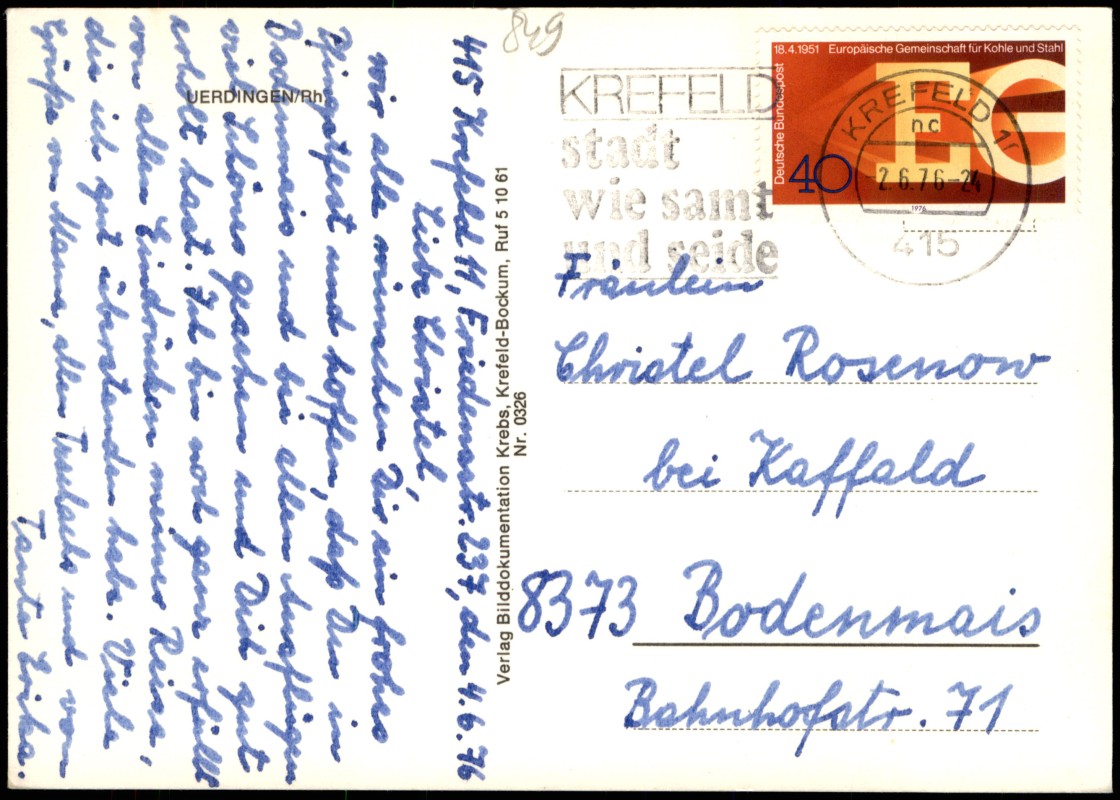 849
UERDINGEN/Rh.
415 Krefeld 11, Friedensstr. 237, den 4.6.76
Liebe Christel,
wir alle wünschen Dir ein frohes
Pfingstfest und hoffen, daß Du in
Bodenmais und bei allen Ausflügen
viel Schönes gesehen und Dich gut
erholt hast. Ich bin noch ganz erfüllt
von allen Eindrücken meiner Reise,
die ich gut überstanden habe. Viele
Grüße von Mama, allen Trashachs und von
Tante Erika.
Verlag Bilddokumentation Krebs, Krefeld-Bockum, Ruf 5 10 61
Nr. 0326
KREFELD
stadt
wie samt
und seide
18.4.1951 Europäische Gemeinschaft für Kohle und Stahl
Deutsche Bundespost
EG
40
1976
KREFELD 11
nc
2.6.76-24
415
Fräulein
Christel Rosenow
bei Kaffald
8373 Bodenmais
Bahnhofstr. 71